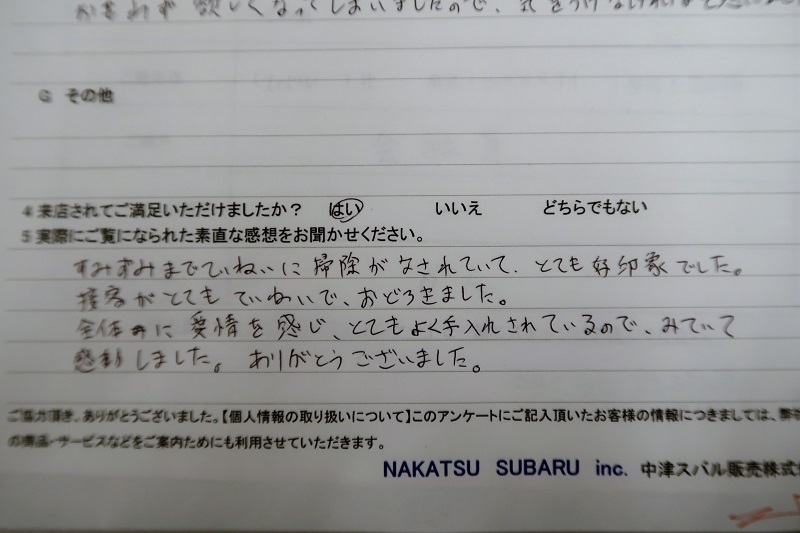 欲しくなってしまいましたので、
G その他
4 来店されてご満足いただけましたか? はい いいえ どちらでもない
5 実際にご覧になられた素直な感想をお聞かせください。
すみずみまでていねいに掃除がなされていて、とても好印象でした。
接客がとてもていねいで、おどろきました。
全体的に愛情を感じ、とてもよく手入れされているので、みていて
感動しました。ありがとうございました。
ご協力頂き、ありがとうございました。【個人情報の取り扱いについて】このアンケートにご記入頂いたお客様の情報につきましては、弊
の商品・サービスなどをご案内ためにも利用させていただきます。
NAKATSU SUBARU inc. 中津スバル販売株式